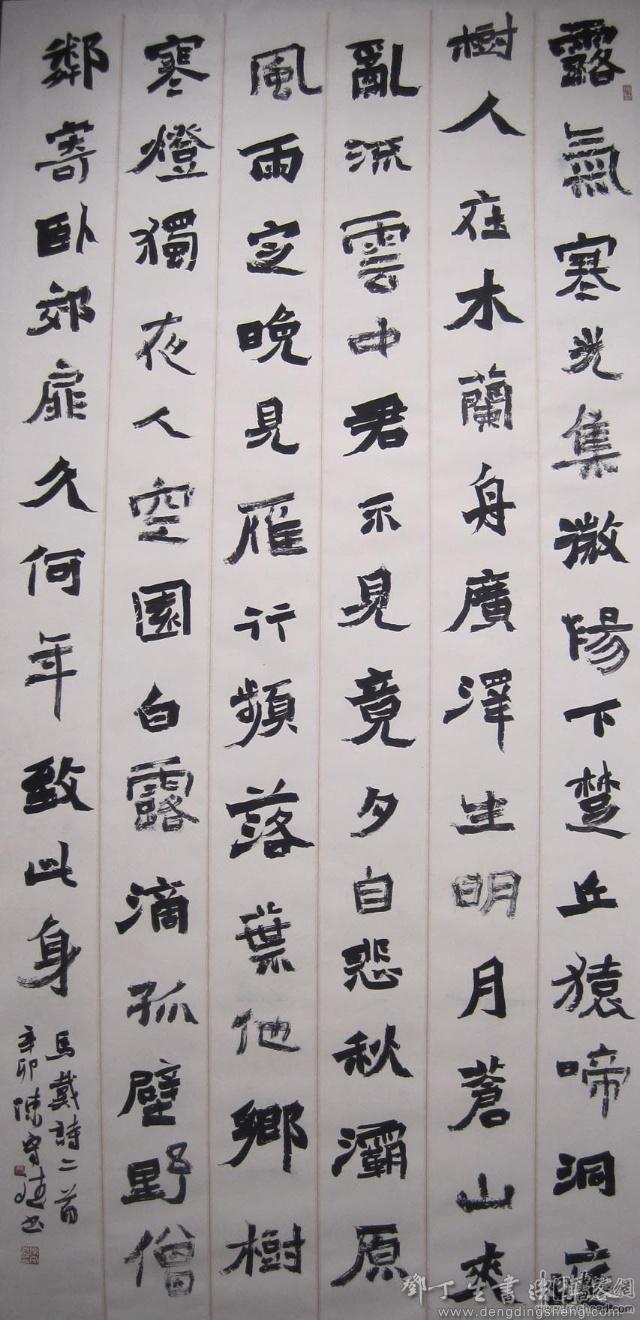 露氣寒光集微陽下楚丘猿啼洞庭
樹人在木蘭舟廣澤生明月蒼山夾
亂流雲中君不見竟夕自悲秋灞原
風雨定晚見雁行頻落葉他鄉樹
寒燈獨夜人空園白露滴孤壁野僧
鄰寄臥郊扉久何年致此身
馬戴詩二首
辛卯陳守書
鄧丁生書法網
www.dengdingsheng.com